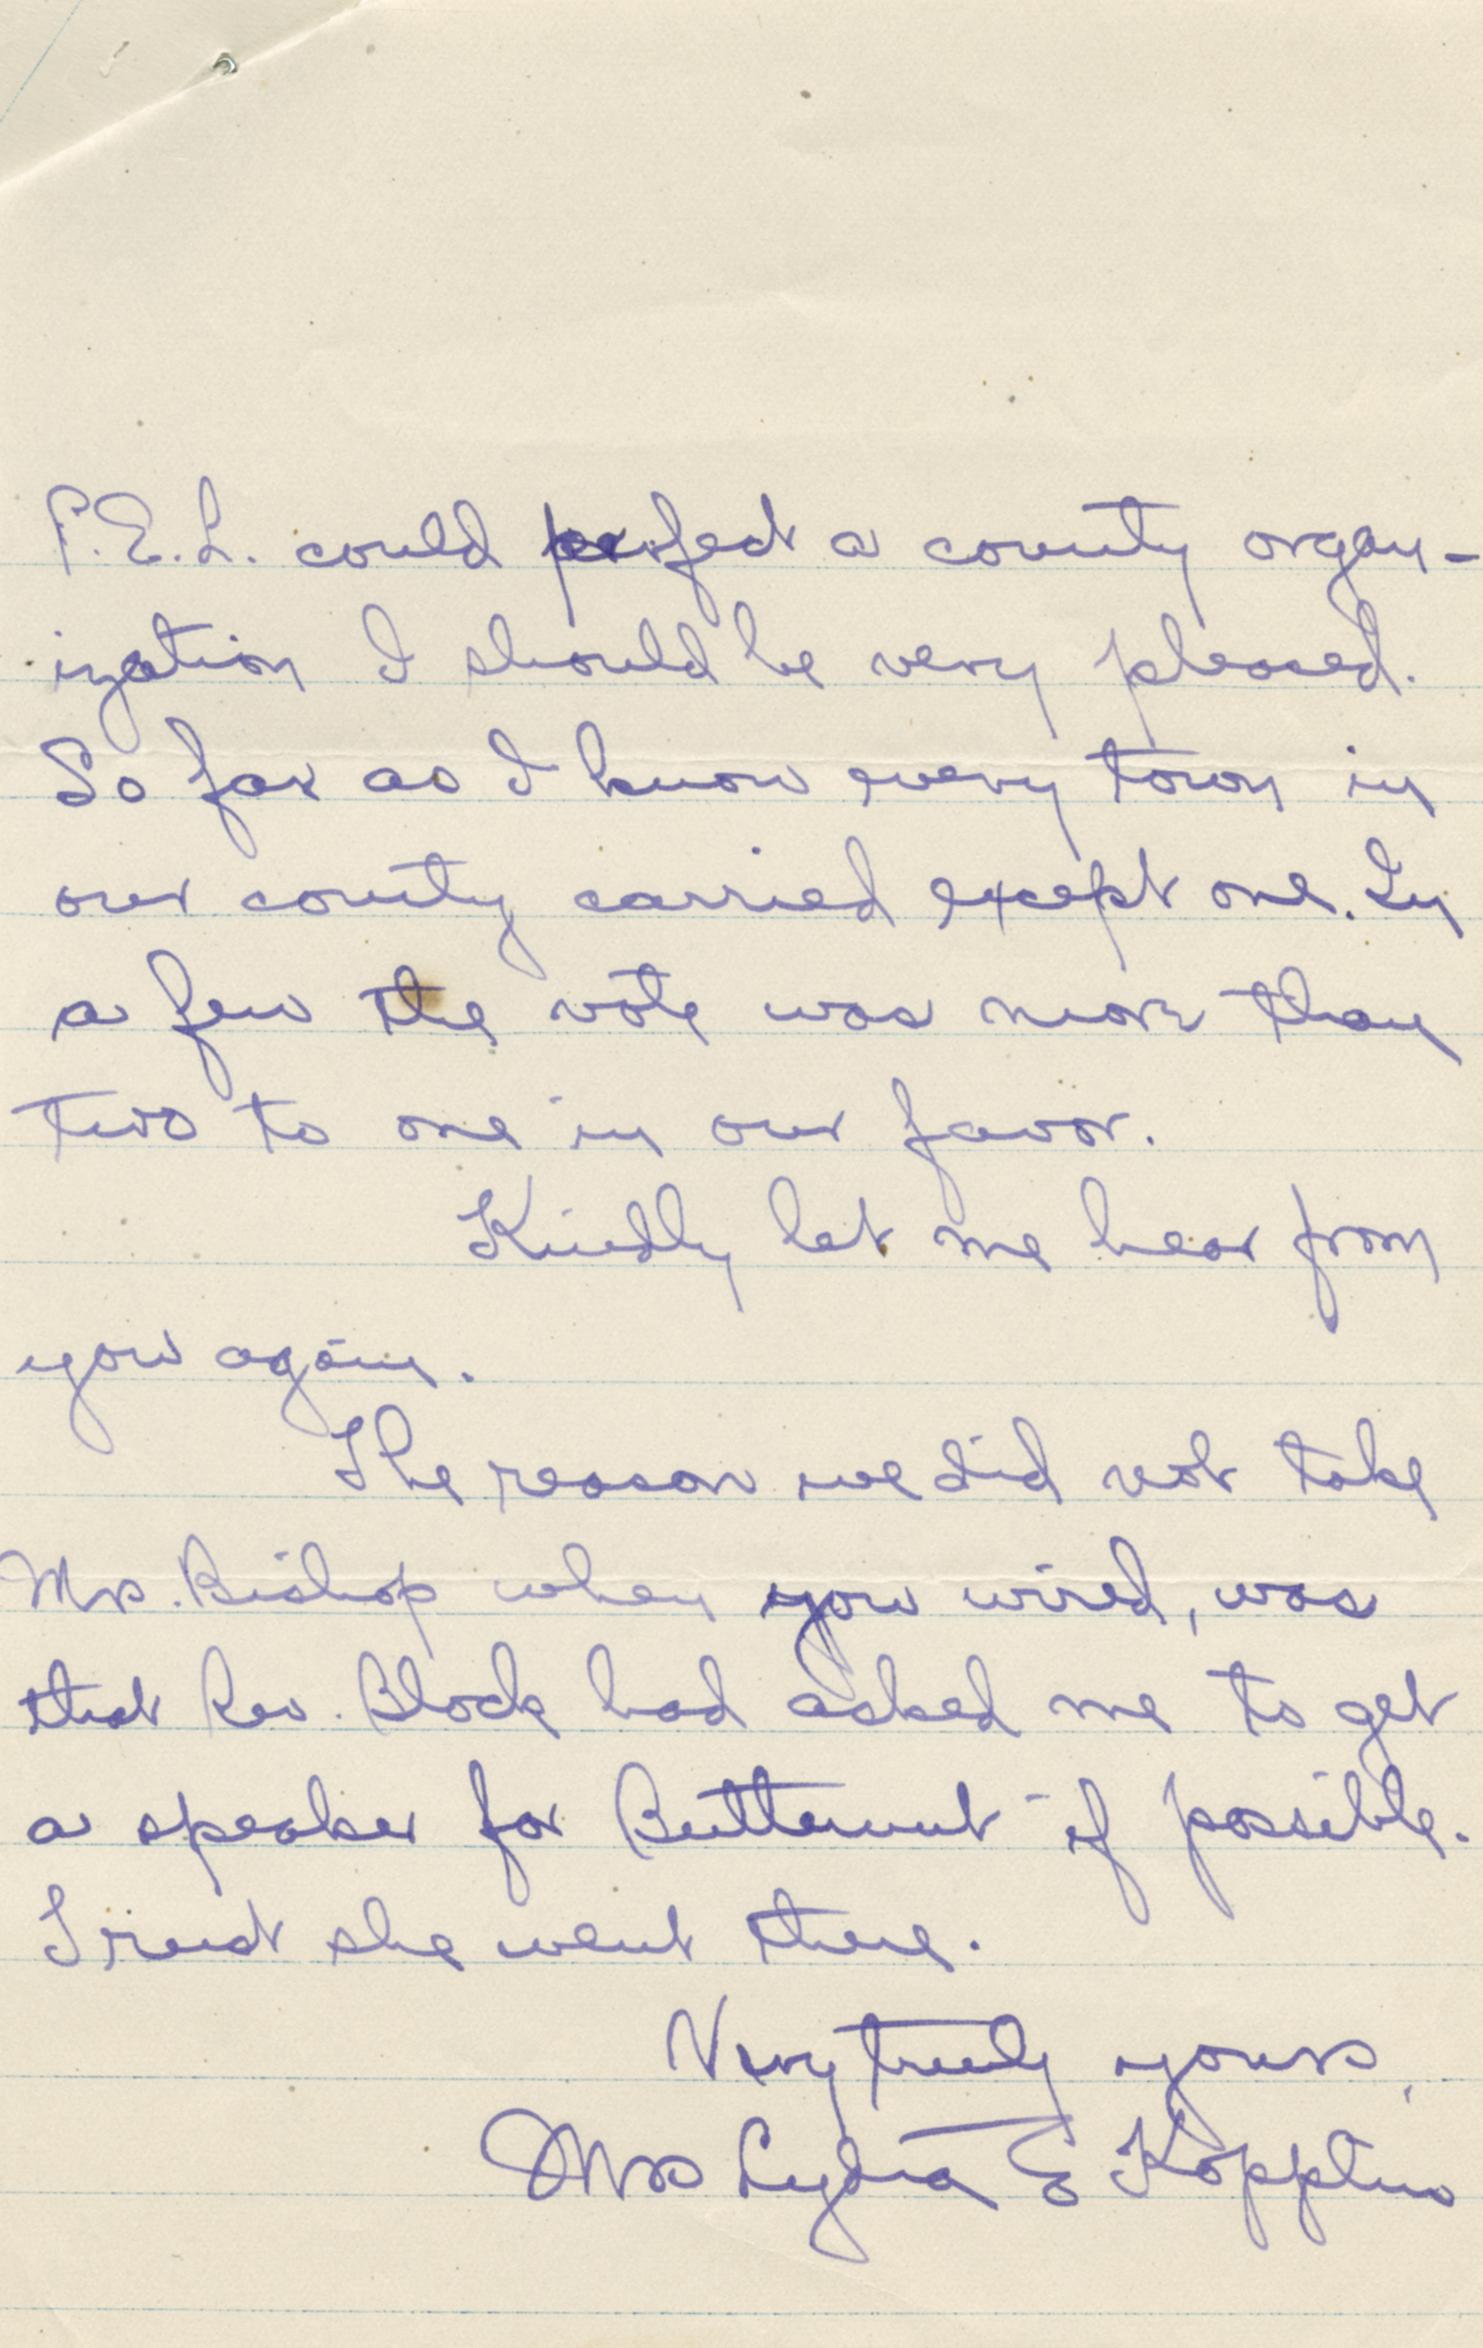 P.E.L. could perfect a county organ-
ization I should be very pleased.
So far as I know every town in
our county carried except one. In
a few the vote was more than
two to one in our favor.
Kindly let me hear from
you again.
The reason we did not take
Mrs. Bishop when you wired, was
that Rev. Block had asked me to get
a speaker for Butternut if possible.
Trust she went there.
Very truly yours,
Mrs Lydia E Kopplin